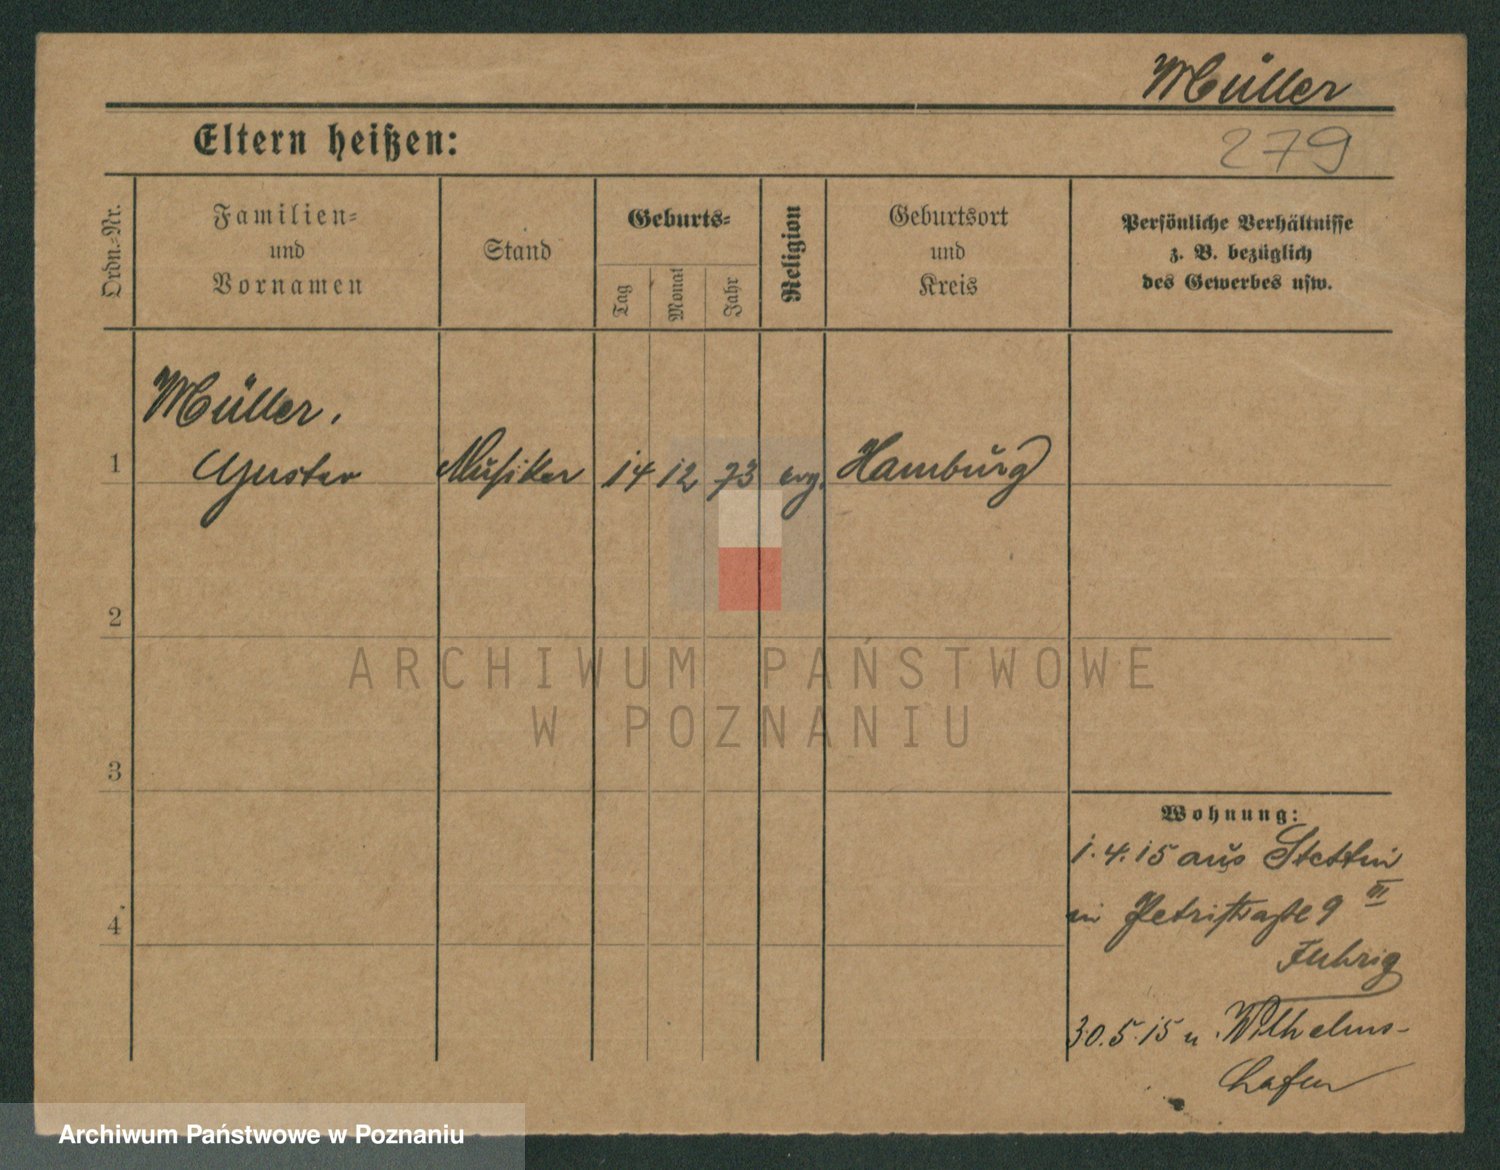 Müller
Eltern heißen:
279
Ordn.-Nr.
Familien-
und
Vornamen
Stand
Geburts-
Tag
Monat
Jahr
Religion
Geburtsort
und
Kreis
Persönliche Verhältnisse
z. B. bezüglich
des Gewerbes usw.
Müller,
1 Gustav Musiker 14 12 73 evg. Hamburg
2
ARCHIWUM PAŃSTWOWE
W POZNANIU
3
Wohnung:
1.4.15 aus Stettin
in Petristraße 9 III
4
Fuhrig
30.5.15 n. Wilhelms-
hafen
Archiwum Państwowe w Poznaniu